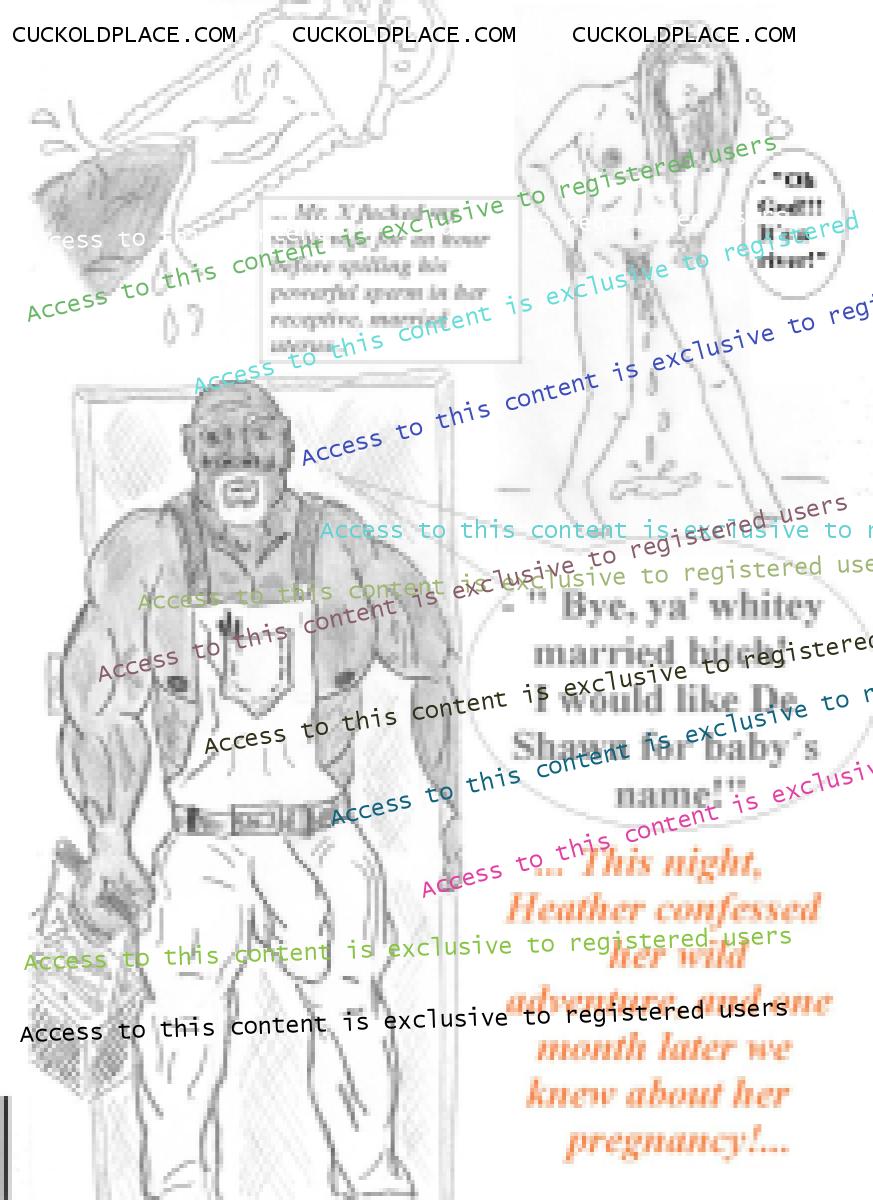 CUCKOLDPLACE.COM CUCKOLDPLACE.COM CUCKOLDPLACE.COM
- "Oh
God!!!
It's a
river!"
... Mr. X fucked my
an hour
before spilling his
powerful sperm in her
receptive, married
uterus
Access to this content is exclusive to registered users
Access to this content is exclusive to registered
Access to this content is exclusive to regi
Access to this content is exclusive to r
Access to this content is exclusive to registered users
Access to this content is exclusive to registered use
- " Bye, ya' whitey
married bitch!
I would like De
Shawn for baby's
name!'"
Access to this content is exclusive to registered
Access to this content is exclusive to r
Access to this content is exclusiv
... This night,
Heather confessed
her wild
adventure, and one
month later we
knew about her
pregnancy!...
Access to this content is exclusive to registered users
Access to this content is exclusive to registered users